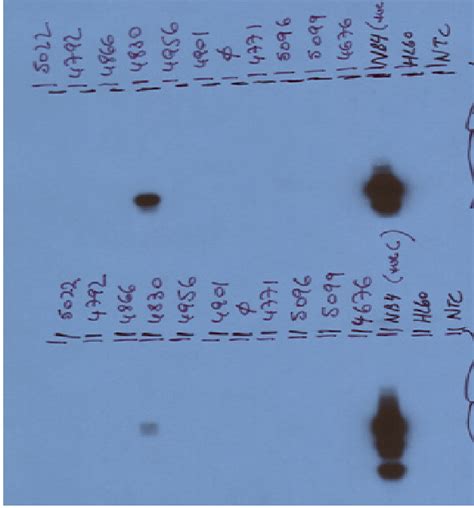 5022
4792
4866
4830
4956
4901
φ
4771
5096
5099
4676
NB4 (+ve C)
HL60
NTC
5022
4792
4866
4830
4956
4901
φ
4771
5096
5099
4676
NB4 (+ve C)
HL60
NTC